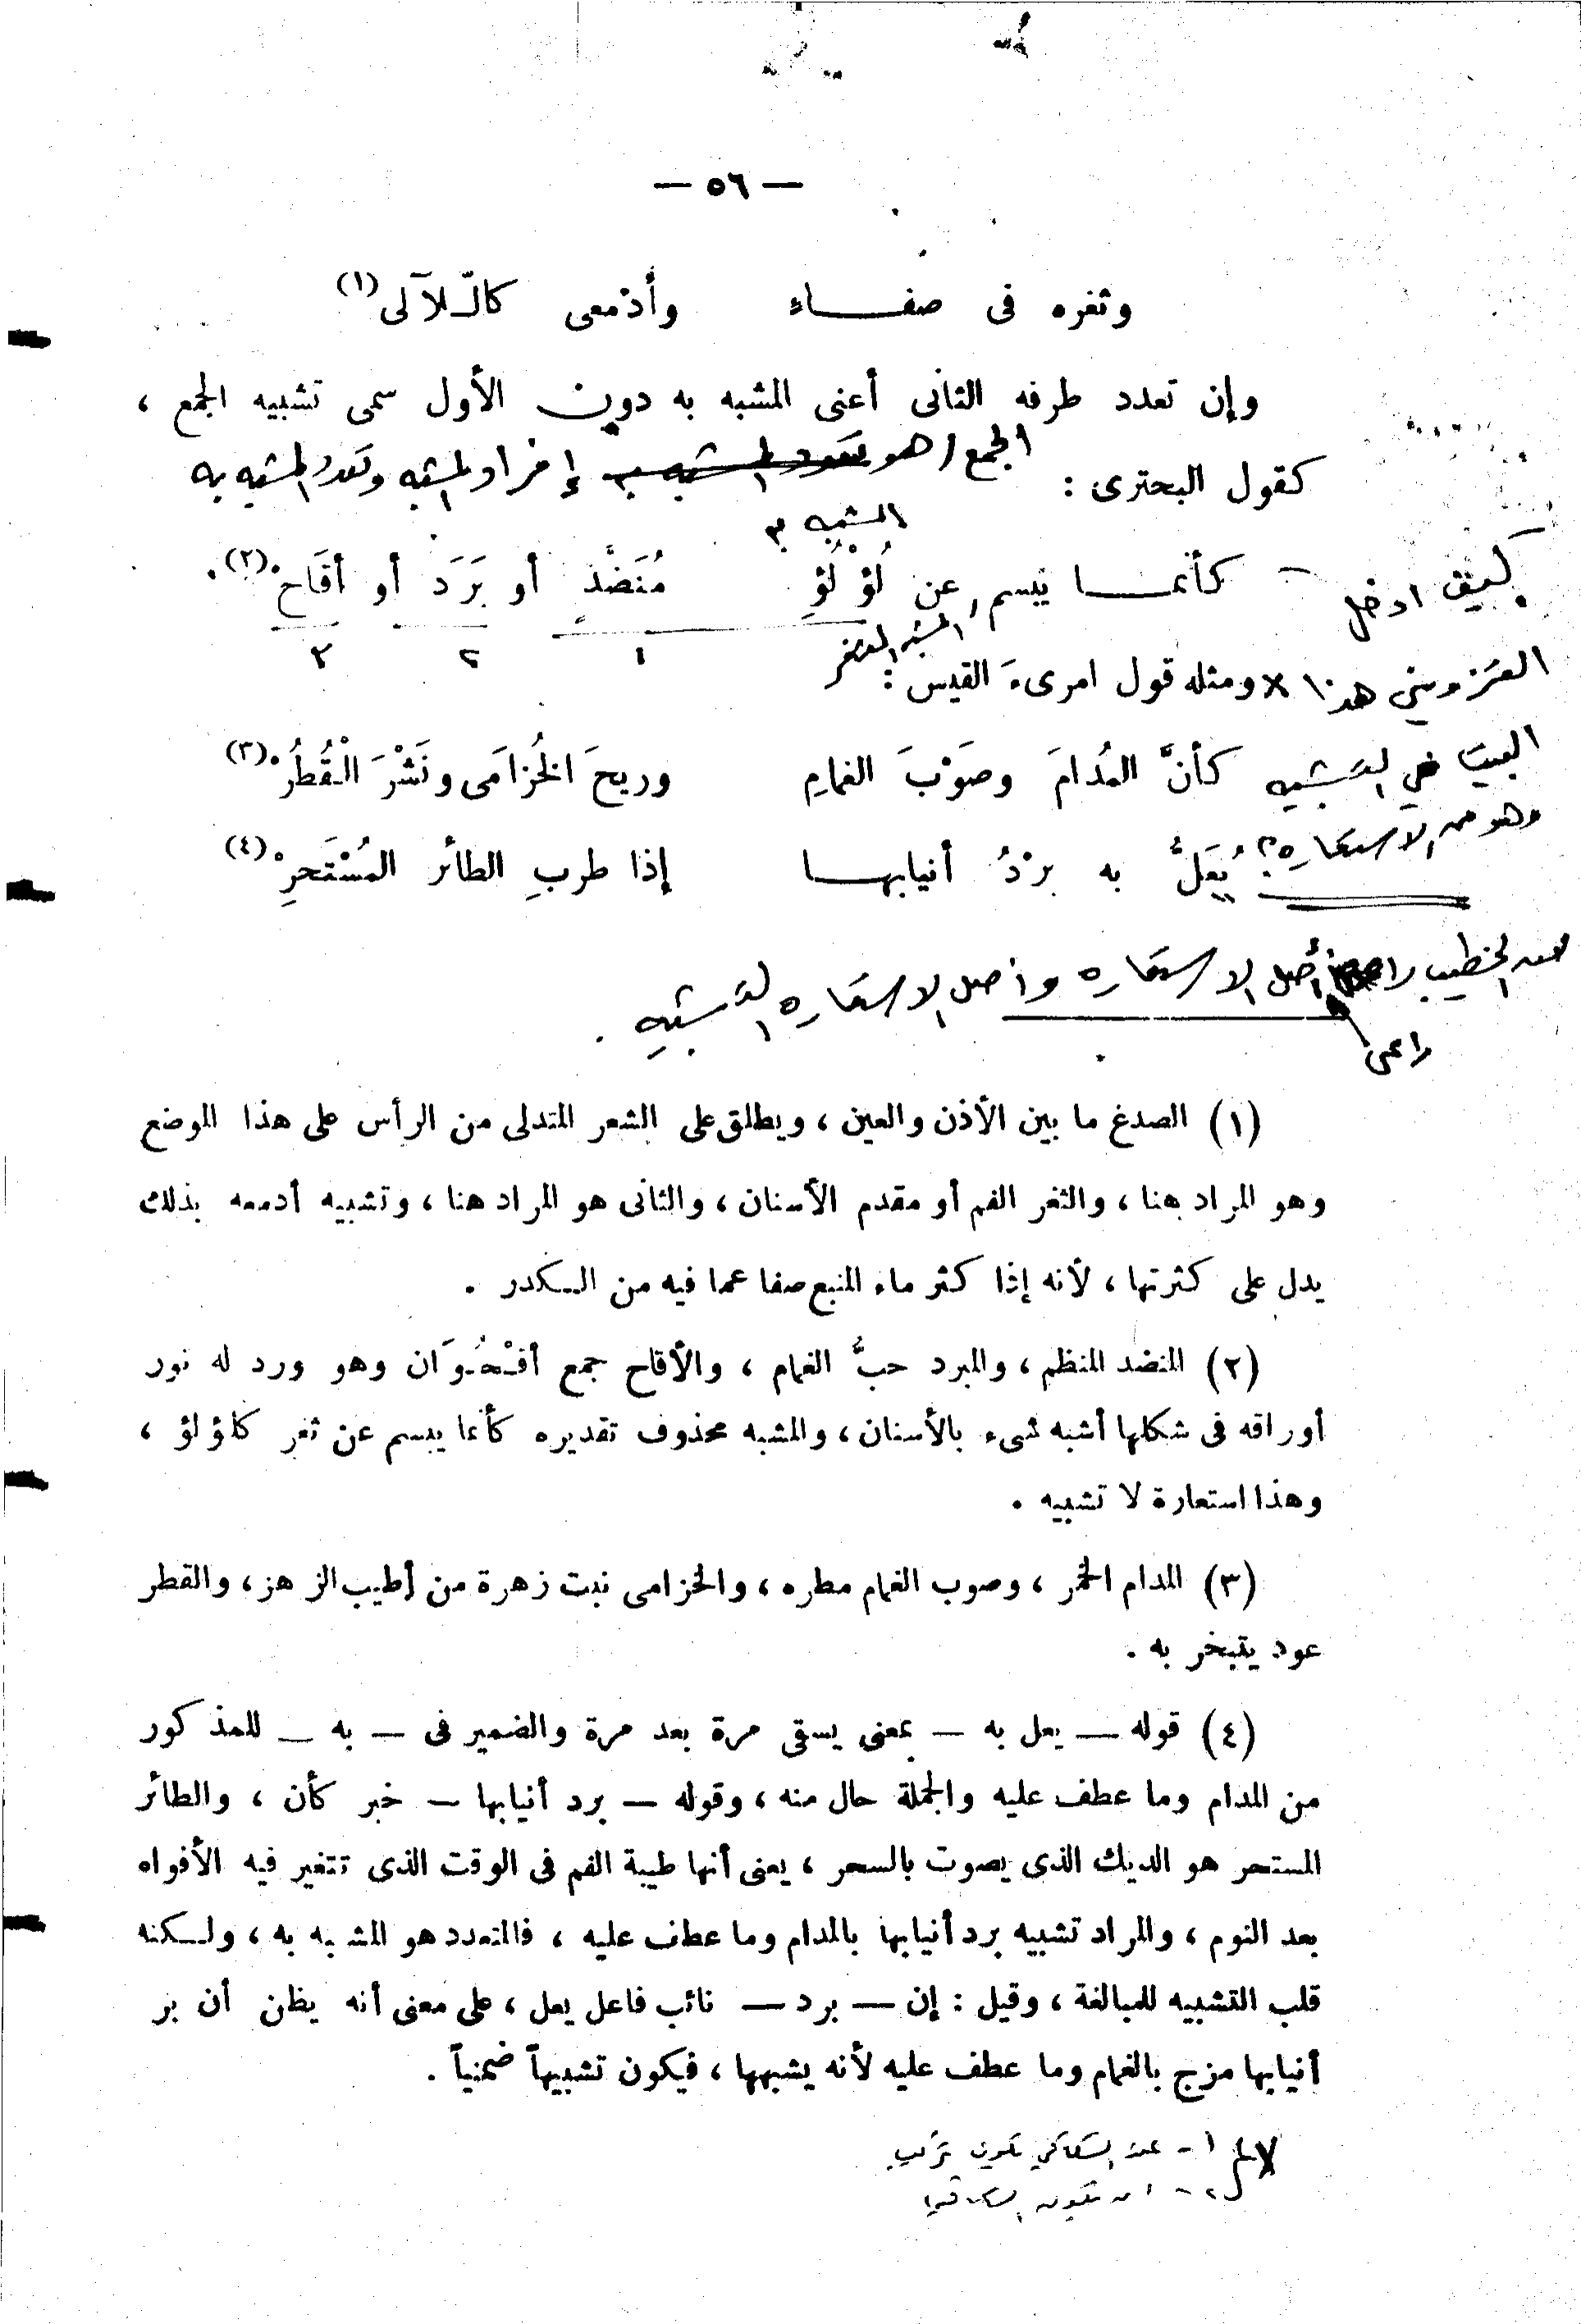 — ٥٦ —
وثغره فى صفـــاء وأدْمعى كالّـلآلى(١)
وإن تعدد طرفه الثانى أعنى المشبه به دون الأول سمى تشبيه الجمع ،
الجمع / هو تعدد المشبه به إفراد المشبه وتعدد المشبه به
كقول البحترى :
المشبه به
كيف ادخل كأنمـــا يبسم عن لُؤْلُؤِ مُنَضَّدٍ أو بَرَد أو أقَاحْ(٢) .
المشبه الثغر
١ ٢ ٣
القزويني هذا × ومثله قول امرىء القيس :
البيت في التشبيه كأنَّ المُدامَ وصَوْبَ الغمامِ وريحَ الخُزامَى ونَشْرَ الْقُطُرْ(٣)
وهو من الاستعارة ؟ يُعَلُّ به برْدُ أنيابهــا إذا طربِ الطائر المُسْتَحرِْ(٤)
الخطيب راعى أصل الاستعارة وأصل الاستعارة التشبيه .
راعى
(١) الصدغ ما بين الأذن والعين ، ويطلق على الشعر المتدلى من الرأس على هذا الموضع
وهو المراد هنا ، والثغر الفم أو مقدم الأسنان ، والثانى هو المراد هنا ، وتشبيه أدمعه بذلك
يدل على كثرتها ، لأنه إذا كثر ماء المنبع صفا عما فيه من الـكدر .
(٢) المنضد المنظم ، والبرد حبُّ الغمام ، والأقاح جمع أقْحُـوَان وهو ورد له نور
أوراقه فى شكلها أشبه شىء بالأسنان ، والمشبه محذوف تقديره كأنما يبسم عن ثغر كلؤلؤ ،
وهذا استعارة لا تشبيه .
(٣) المدام الخمر ، وصوب الغمام مطره ، والخزامى نبت زهرة من أطيب الزهر ، والقطر
عود يتبخر به .
(٤) قوله — يعل به — بمعنى يسقى مرة بعد مرة والضمير فى — به — للمذكور
من المدام وما عطف عليه والجملة حال منه ، وقوله — برد أنيابها — خبر كأن ، والطائر
المستحر هو الديك الذى يصوت بالسحر ، يعنى أنها طيبة الفم فى الوقت الذى تتغير فيه الأفواه
بعد النوم ، والمراد تشبيه برد أنيابها بالمدام وما عطف عليه ، فالمتعدد هو المشبه به ، ولـكنه
قلب التشبيه للمبالغة ، وقيل : إن — برد — نائب فاعل يعل ، على معنى أنه يظن أن بر
أنيابها مزج بالغمام وما عطف عليه لأنه يشبهها ، فيكون تشبيهاً ضمنياً .
١ - عند السكاكي تكون
٢ -